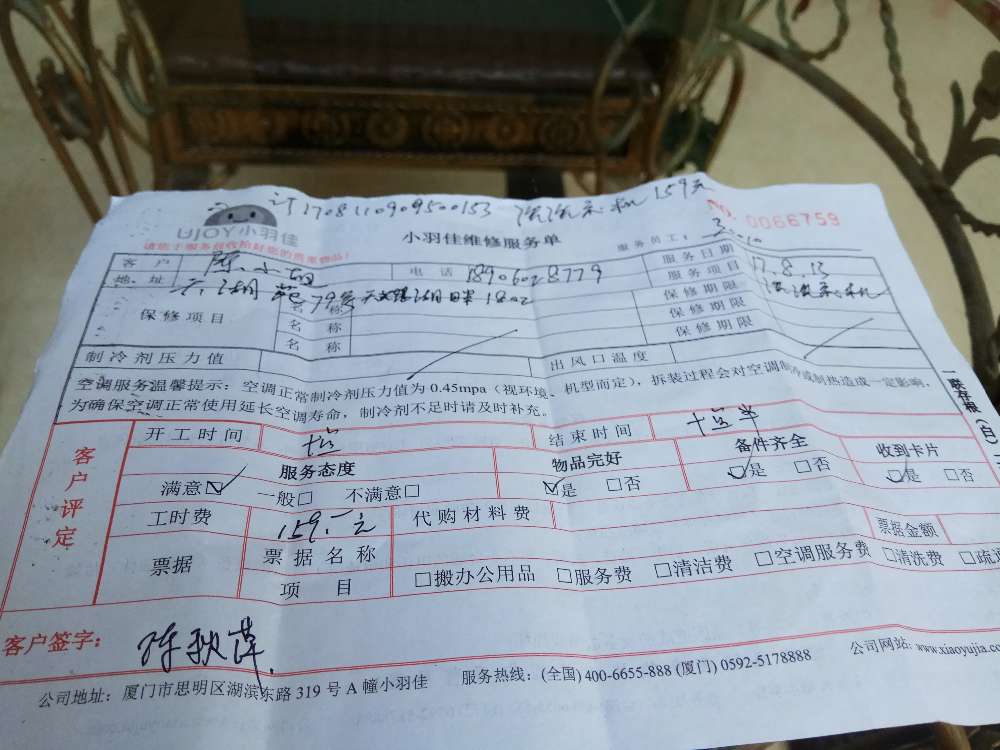 订1708110909500153 洗洗衣机 159元
UJOY小羽佳
小羽佳维修服务单
No. 0066759
请您于服务前收拾好您的贵重物品！
服务员工：
客户 陈小姐 电话 18906028779 服务日期 17.8.13
地、址 79号天湖 1802 服务项目 洗洗衣机
保修项目 名称 保修期限
名称 保修期限
名称 保修期限
制冷剂压力值 出风口温度
空调服务温馨提示：空调正常制冷剂压力值为 0.45mpa（视环境、机型而定），拆装过程会对空调制冷或制热造成一定影响，
为确保空调正常使用延长空调寿命，制冷剂不足时请及时补充。
一联存根（白）
客户评定
开工时间 十点 结束时间 十点半
服务态度 物品完好 备件齐全 收到卡片
满意☑ 一般□ 不满意□ ☑是 □否 ☑是 □否 ☑是 □否
工时费 159.-元 代购材料费
票据 票据名称 票据金额
项目 □搬办公用品 □服务费 □清洁费 □空调服务费 □清洗费 □疏通
客户签字：陈秋萍
公司地址：厦门市思明区湖滨东路 319 号 A 幢小羽佳 服务热线：(全国) 400-6655-888 (厦门) 0592-5178888 公司网站: www.xiaoyujia.com